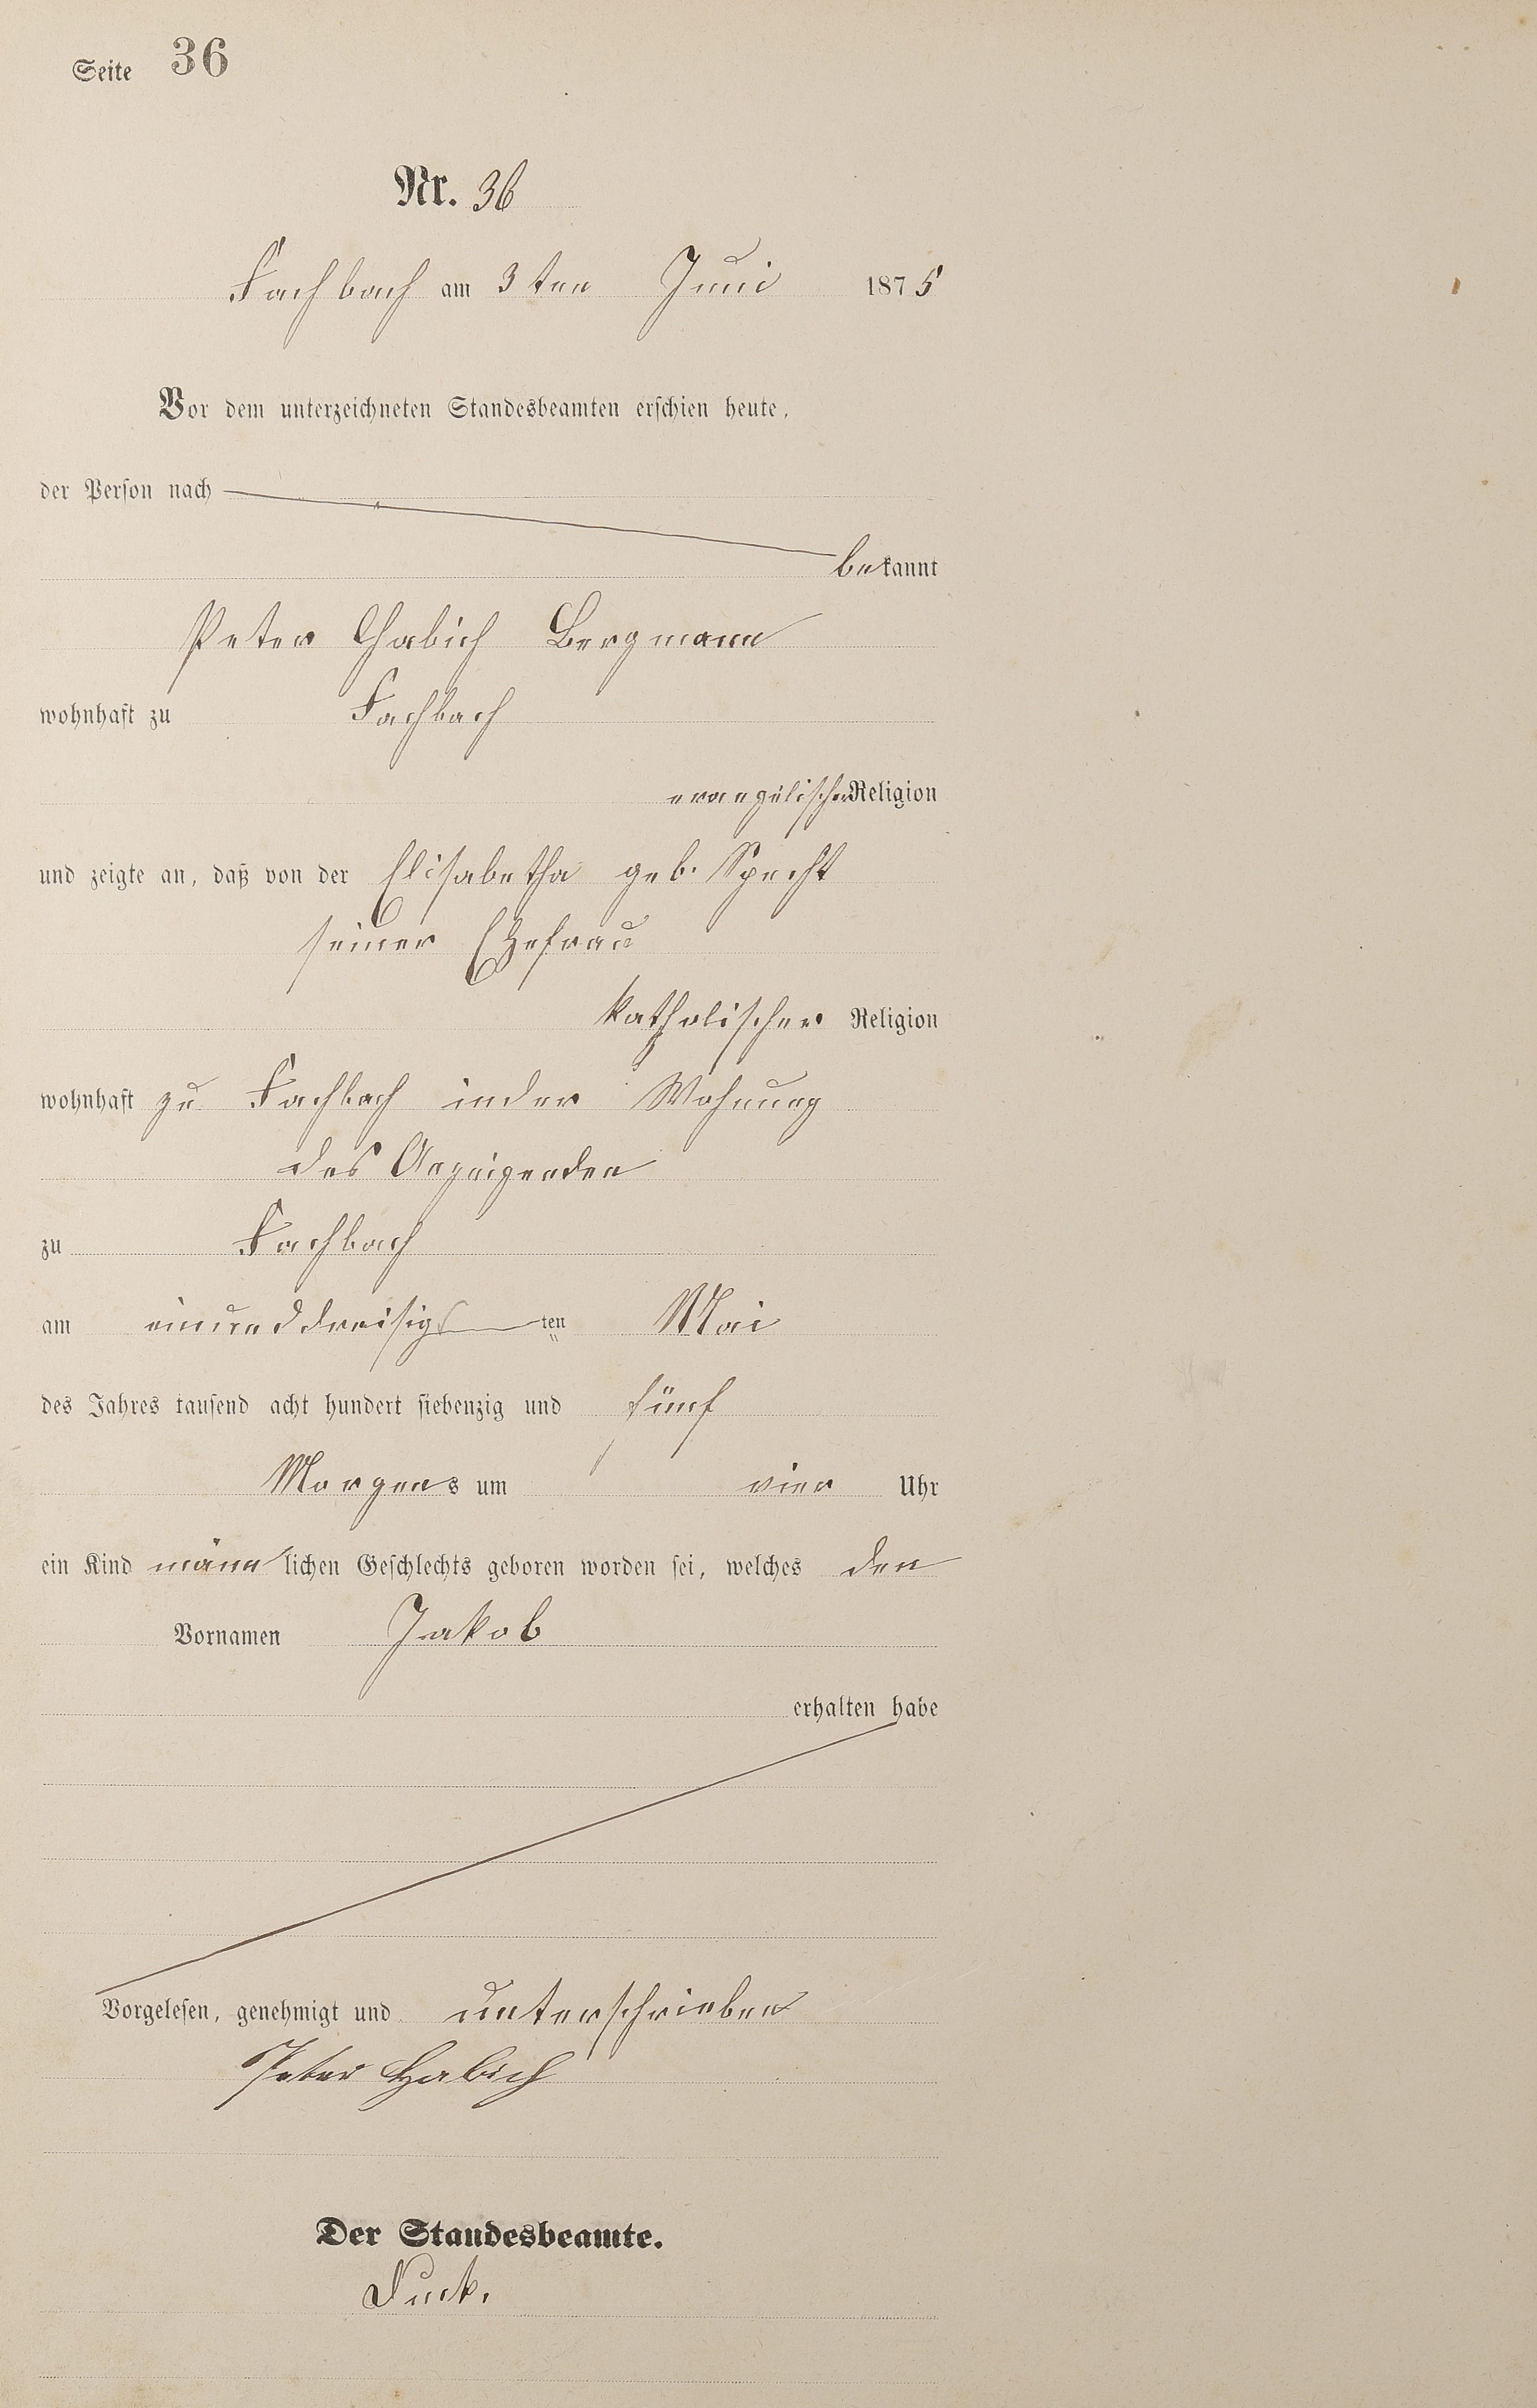 Seite 36
Nr. 36
Fachbach am 3ten Juni 1875
Vor dem unterzeichneten Standesbeamten erschien heute,
der Person nach
bekannt
Peter Habich Bergmann
wohnhaft zu Fachbach
evangelischer Religion
und zeigte an, daß von der Elisabetha geb. Specht
seiner Ehefrau
katholischer Religion
wohnhaft zu Fachbach in der Wohnung
des Anzeigenden
zu Fachbach
am einunddreisigsten Mai
des Jahres tausend acht hundert siebenzig und fünf
Morgens um vier Uhr
ein Kind männlichen Geschlechts geboren worden sei, welches den
Vornamen Jakob
erhalten habe
Vorgelesen, genehmigt und unterschrieben
Peter Habich
Der Standesbeamte.